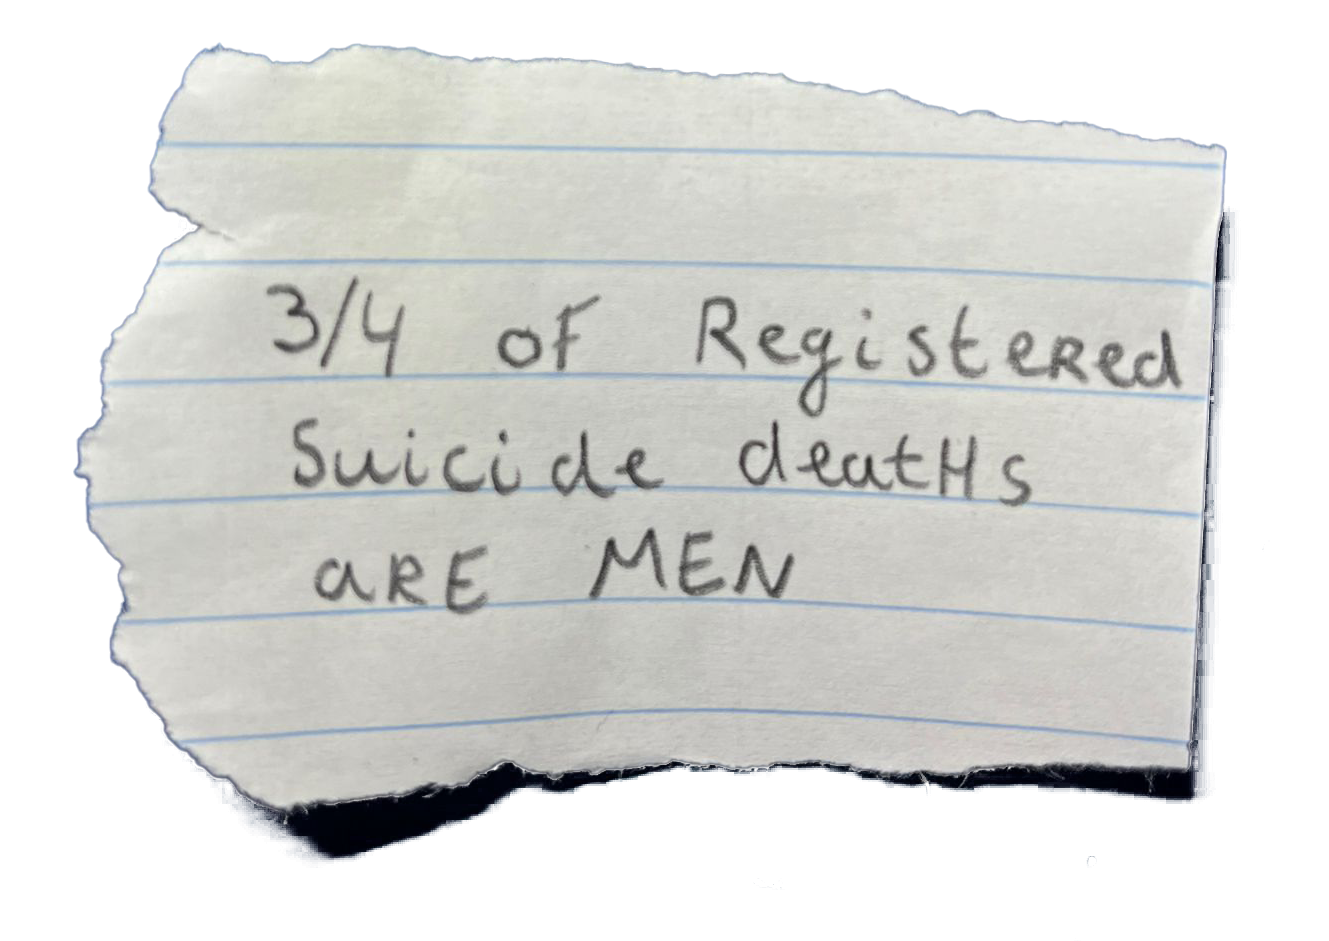 3/4 of Registered
Suicide deatHs
aRE MEN